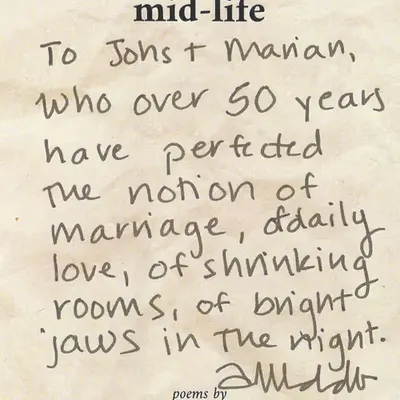 mid-life
To Johs + Marian,
who over 50 years
have perfected
The notion of
marriage, of daily
love, of shrinking
rooms, of bright
jaws in The night.
poems by